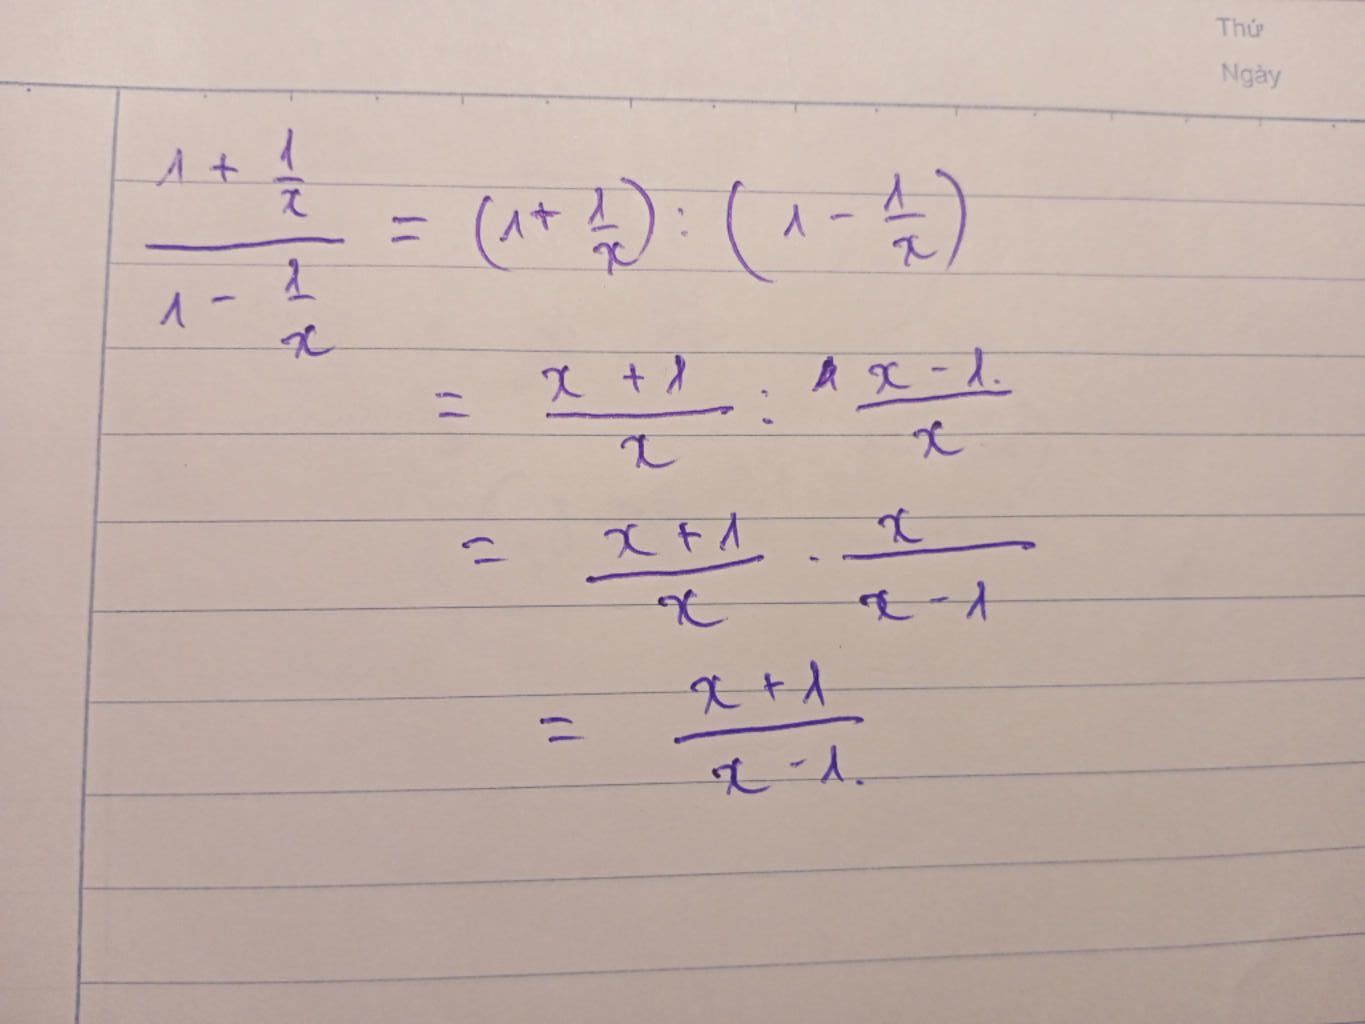 Thứ
Ngày
\frac{1 + \frac{1}{x}}{1 - \frac{1}{x}} = \left(1 + \frac{1}{x}\right) : \left(1 - \frac{1}{x}\right)
= \frac{x + 1}{x} : \frac{x - 1.}{x}
= \frac{x + 1}{x} . \frac{x}{x - 1}
= \frac{x + 1}{x - 1.}